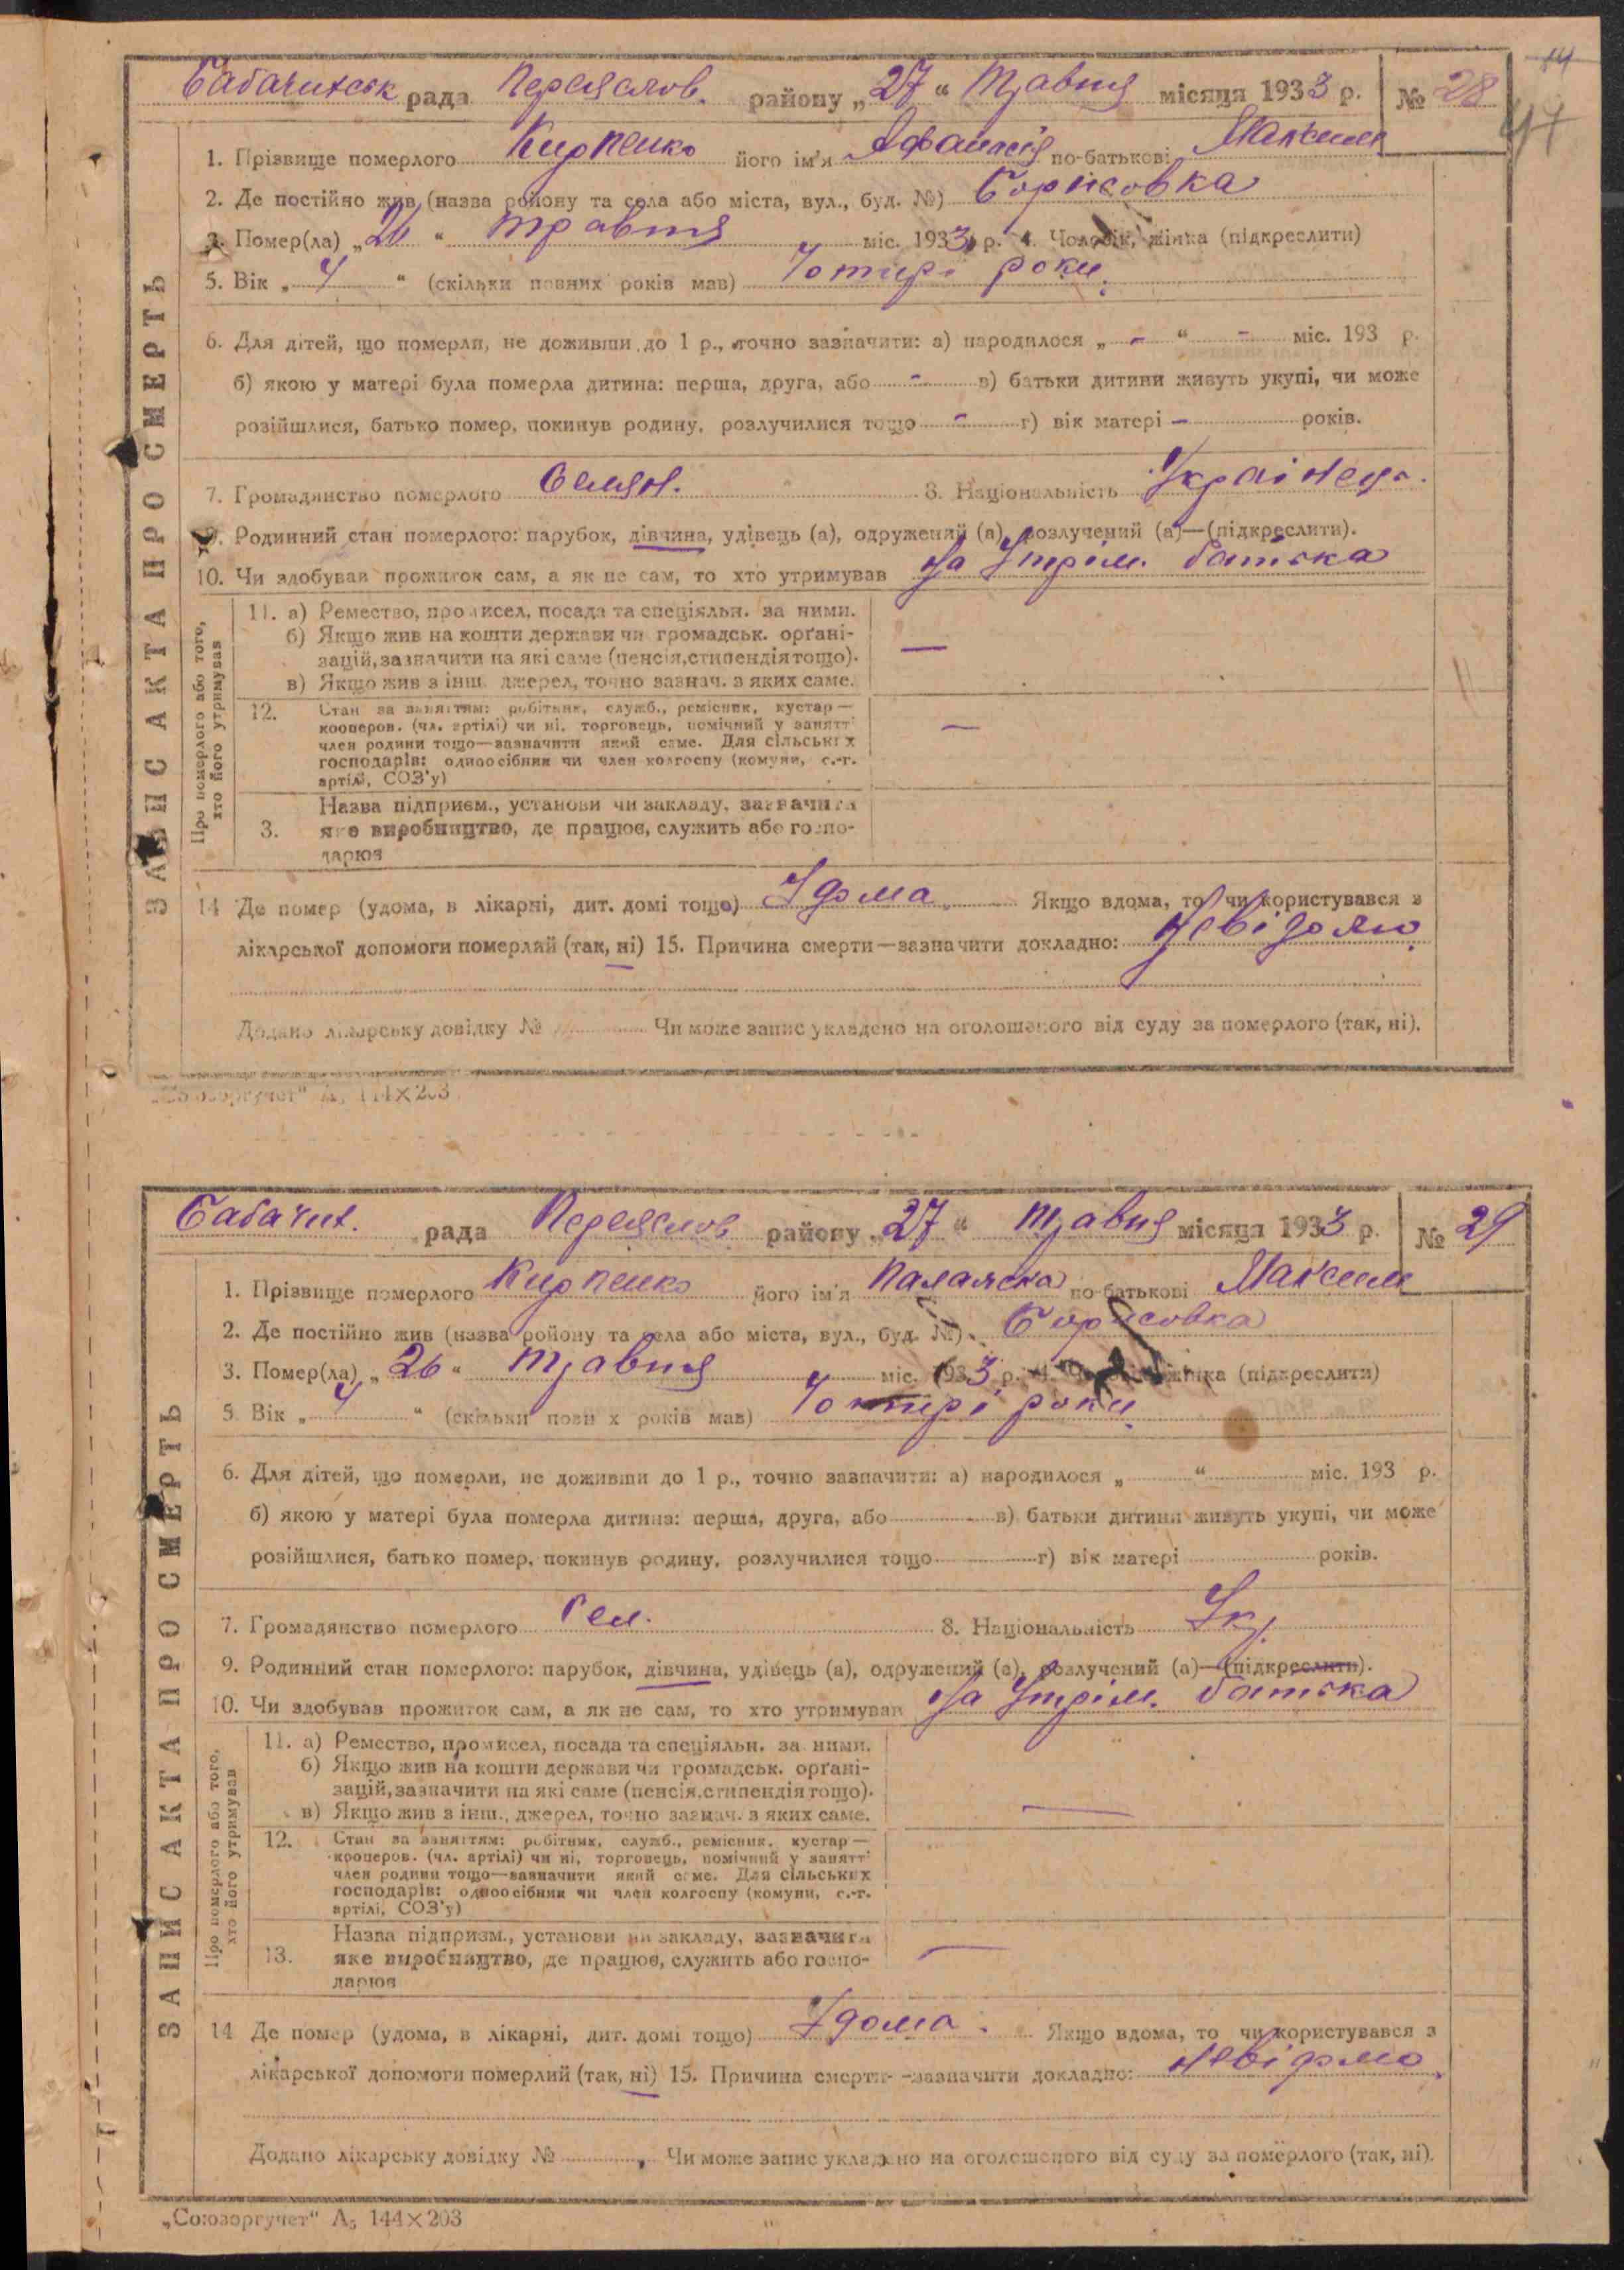 14
47
Бабачихськ рада Переяслов. району „27“ Травня місяця 1933 р. № 28
1. Прізвище померлого Кирпенко його ім'я по-батькові Максим
2. Де постійно жив (назва району та села або міста, вул., буд. №) Борисовка
3. Помер(ла) „26“ травня міс. 1933 р. 4. Чоловік, жінка (підкреслити)
5. Вік „4“ (скільки повних років мав) Чотирі роки.
6. Для дітей, що померли, не доживши до 1 р., точно зазначити: а) народилося „ - “ - міс. 193 р.
б) якою у матері була померла дитина: перша, друга, або - в) батьки дитини живуть укупі, чи може
розійшлися, батько помер, покинув родину, розлучилися тощо - г) вік матері - років.
7. Громадянство померлого Селян. 8. Національність Українец.
9. Родинний стан померлого: парубок, дівчина, удівець (а), одружений (а), розлучений (а)—(підкреслити).
10. Чи здобував прожиток сам, а як не сам, то хто утримував На Утрім. батька
ЗАПИС АКТА ПРО СМЕРТЬ
Про померлого або того, хто його утримував
11. а) Ремество, промисел, посада та спеціяльн. за ними.
б) Якщо жив на кошти держави чи громадськ. орґані-
зацій, зазначити на які саме (пенсія, стипендія тощо). —
в) Якщо жив з інш. джерел, точно зазнач. з яких саме.
12. Стан за заняттям: робітник, служб., ремісник, кустар—
кооперов. (чл. артілі) чи ні, торговець, помічний у занятт
член родини тощо—зазначити який саме. Для сільських
господарів: одноосібник чи член колгоспу (комуни, с.-г.
артілі, СОЗ'у)
Назва підприєм., установи чи закладу, зазначити
3. яке виробництво, де працює, служить або госпо-
дарює
14 Де помер (удома, в лікарні, дит. домі тощо) Удома. Якщо вдома, то чи користувався з
лікарської допомоги померлий (так, ні) 15. Причина смерти—зазначити докладно: Невідомо.
Додано лікарську довідку № Чи може запис укладено на оголошеного від суду за померлого (так, ні).
„Союзоргучет“ А5 144×203
Бабачих. рада Переяслов району „27“ травня місяця 1933 р. № 29
1. Прізвище померлого Кирпенко його ім'я Палажка по-батькові Максим
2. Де постійно жив (назва району та села або міста, вул., буд. №). Борисовка
3. Помер(ла) „26“ травня міс. 1933 р. 4. жінка (підкреслити)
5. Вік „4“ (скільки повних років мав) Чотирі роки.
6. Для дітей, що померли, не доживши до 1 р., точно зазначити: а) народилося „ “ міс. 193 р.
б) якою у матері була померла дитина: перша, друга, або в) батьки дитини живуть укупі, чи може
розійшлися, батько помер, покинув родину, розлучилися тощо г) вік матері років.
7. Громадянство померлого Сел. 8. Національність Укр.
9. Родинний стан померлого: парубок, дівчина, удівець (а), одружений (а), розлучений (а)—(підкреслити).
10. Чи здобував прожиток сам, а як не сам, то хто утримував На Утрім. батька
ЗАПИС АКТА ПРО СМЕРТЬ
Про померлого або того, хто його утримував
11. а) Ремество, промисел, посада та спеціяльн. за ними.
б) Якщо жив на кошти держави чи громадськ. орґані-
зацій, зазначити на які саме (пенсія, стипендія тощо).
в) Якщо жив з інш., джерел, точно зазнач. з яких саме. —
12. Стан за заняттям: робітник, служб., ремісник, кустар—
кооперов. (чл. артілі) чи ні, торговець, помічний у занятт
член родини тощо—зазначити який саме. Для сільських
господарів: одноосібник чи член колгоспу (комуни, с.-г.
артілі, СОЗ'у)
Назва підприєм., установи чи закладу, зазначити
13. яке виробництво, де працює, служить або госпо- —
дарює
14 Де помер (удома, в лікарні, дит. домі тощо) Удома. Якщо вдома, то чи користувався з
лікарської допомоги померлий (так, ні) 15. Причина смерти—зазначити докладно: невідомо.
Додано лікарську довідку № Чи може запис укладено на оголошеного від суду за померлого (так, ні).
„Союзоргучет“ А5 144×203